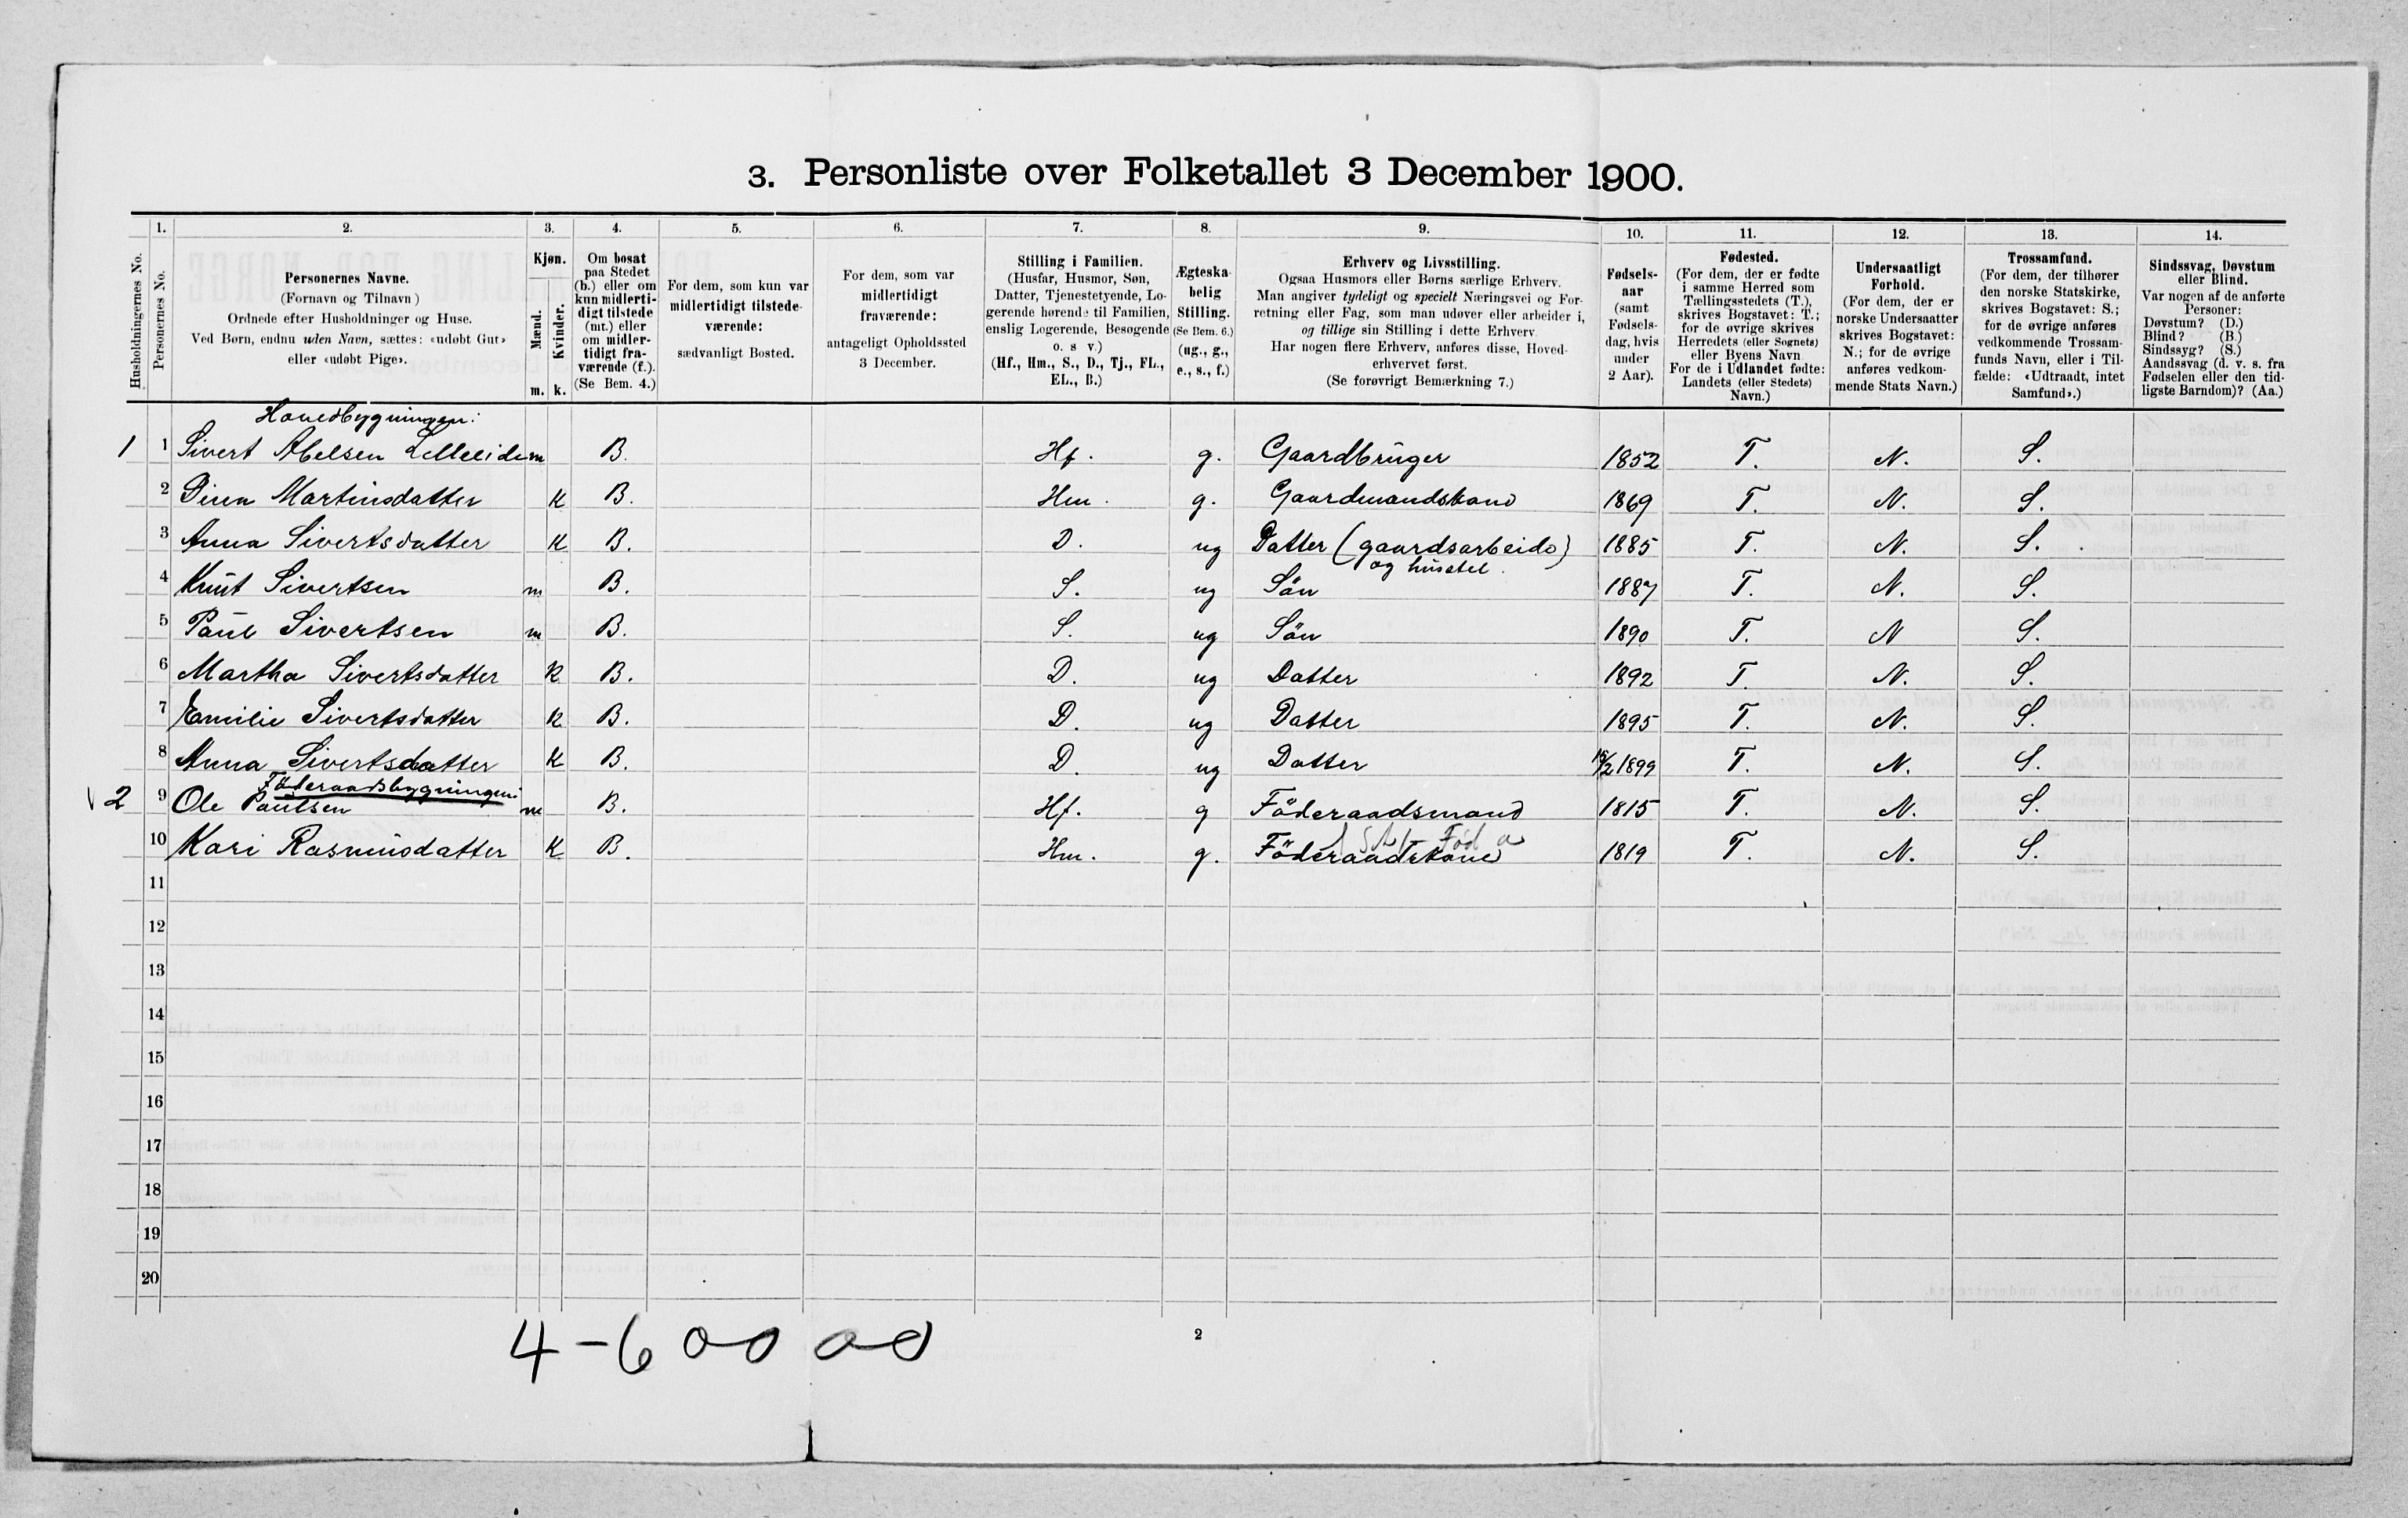 3. Personliste over Folketallet 3 December 1900.
1. 2. 3. 4. 5. 6. 7. 8. 9. 10. 11. 12. 13. 14.
Husholdningernes No.
Personernes No.
Personernes Navne.
(Fornavn og Tilnavn)
Ordnede efter Husholdninger og Huse.
Ved Børn, endnu uden Navn, sættes: «udøbt Gut»
eller «udøbt Pige».
Kjøn.
Mænd.
Kvinder.
m. k.
Om bosat
paa Stedet
(b.) eller om
kun midlerti-
digt tilstede
(mt.) eller
om midler-
tidigt fra-
værende (f.).
(Se Bem. 4.)
For dem, som kun var
midlertidigt tilstede-
værende:
sædvanligt Bosted.
For dem, som var
midlertidigt
fraværende:
antageligt Opholdssted
3 December.
Stilling i Familien.
(Husfar, Husmor, Søn,
Datter, Tjenestetyende, Lo-
gerende hørende til Familien,
enslig Logerende, Besøgende
o. s v.)
(Hf., Hm., S., D., Tj., FL.,
EL., B.)
Ægteska-
belig
Stilling.
(Se Bem. 6.)
(ug., g.,
e., s., f.)
Erhverv og Livsstilling.
Ogsaa Husmors eller Børns særlige Erhverv.
Man angiver tydeligt og specielt Næringsvei og For-
retning eller Fag, som man udøver eller arbeider i,
og tillige sin Stilling i dette Erhverv.
Har nogen flere Erhverv, anføres disse, Hoved-
erhvervet først.
(Se forøvrigt Bemærkning 7.)
Fødsels-
aar
(samt
Fødsels-
dag, hvis
under
2 Aar).
Fødested.
(For dem, der er fødte
i samme Herred som
Tællingsstedets (T.),
skrives Bogstavet: T.;
for de øvrige skrives
Herredets (eller Sognets)
eller Byens Navn.
For de i Udlandet fødte:
Landets (eller Stedets)
Navn.)
Undersaatligt
Forhold.
(For dem, der er
norske Undersaatter
skrives Bogstavet:
N.; for de øvrige
anføres vedkom-
mende Stats Navn.)
Trossamfund.
(For dem, der tilhører
den norske Statskirke,
skrives Bogstavet: S.;
for de øvrige anføres
vedkommende Trossam-
funds Navn, eller i Til-
fælde: «Udtraadt, intet
Samfund».)
Sindssvag, Døvstum
eller Blind.
Var nogen af de anførte
Personer:
Døvstum? (D.)
Blind? (B.)
Sindssyg? (S.)
Aandssvag (d. v. s. fra
Fødselen eller den tid-
ligste Barndom)? (Aa.)
Hovedbygningen:
1 1 Sivert Abelsen Lilleeide m B. Hf. g. Gaardbruger 1852 T. N. S.
2 Dina Martinsdatter K B. Hm. g. Gaardmandskone 1869 T. N. S.
3 Anna Sivertsdatter K B. D. ug Datter (gaardsarbeide) 1885 T. N. S.
og husstel.
4 Knut Sivertsen m B. S. ug Sön 1887 T. N. S.
5 Paul Sivertsen m B. S. ug Sön 1890 T. N S.
6 Martha Sivertsdatter K B. D. ug Datter 1892 T. N. S.
7 Emilie Sivertsdatter K B. D. ug Datter 1895 T. N. S.
8 Anna Sivertsdatter K B. D. ug Datter 1899 T. N. S.
Föderaadsbygningen:
2 9 Ole Paulsen m B. Hf. g Föderaadsmand 1815 T. N. S.
10 Kari Rasmusdatter K B. Hm. g. Föderaadskone 1819 T. N. S.
11
12
13
14
15
16
17
18
19
20
4-6 0-0 0-0
2